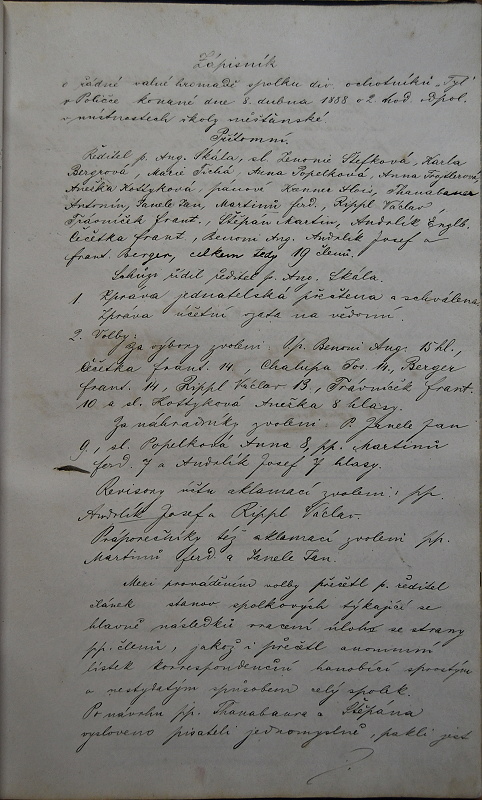 Zápisník
o řádné valné hromadě spolku div. ochotníků „Tyl"
v Poličce konané dne 8. dubna 1888 o 2. hod. odpol.
v místnostech školy měšťanské.
Přítomni:
Ředitel p. Aug. Skála, sl. Zenonie Štefková, Karla
Bergrová, Marie Tichá, Anna Popelková, Anna Fogtlerová,
Anežka Kottyková, pánové Hanner Alois, Thanabauer
Antonín, Janele Jan, Martinů ferd., Rippl Václav
Trávníček Frant., Štěpán Martin, Andrlík Englb.
Čečetka frant., Benoni Aug. Andrlík Josef a
frant. Berger, celkem tedy 19 členů.
Schůzi řídil ředitel p. Aug. Skála.
1 Zpráva jednatelská přečtena a schválena.
Zpráva účetní vzata na vědomí.
2. Volby:
Za výbory zvoleni: Pp. Benoni Aug. 15 hl.,
Čečetka frant. 14, Chalupa Jos. 14, Berger
frant. 14, Rippl Václav 13, Trávníček frant.
10 a sl. Kottyková Anežka 8 hlasy.
Za náhradníky zvoleni: P. Janele Jan
9, sl. Popelková Anna 8, pp. Martinů
ferd. 7 a Andrlík Josef 7 hlasy.
Revisory účtů aklamací zvoleni: pp.
Andrlík Josef a Rippl Václav.
Práporečníky též aklamací zvoleni pp.
Martinů ferd. a Janele Jan.
Mezi prováděním volby přečetl p. ředitel
článek stanov spolkových týkající se
hlavně následků vracení úloh se strany
pp. členů, jakož i přečetl anonymní
lístek korrespondenční hanobící sprostým
a nestydatým způsobem celý spolek.
Po návrhu pp. Thanabaura a Štěpána
vysloveno pisateli jednomyslně, pakli jest